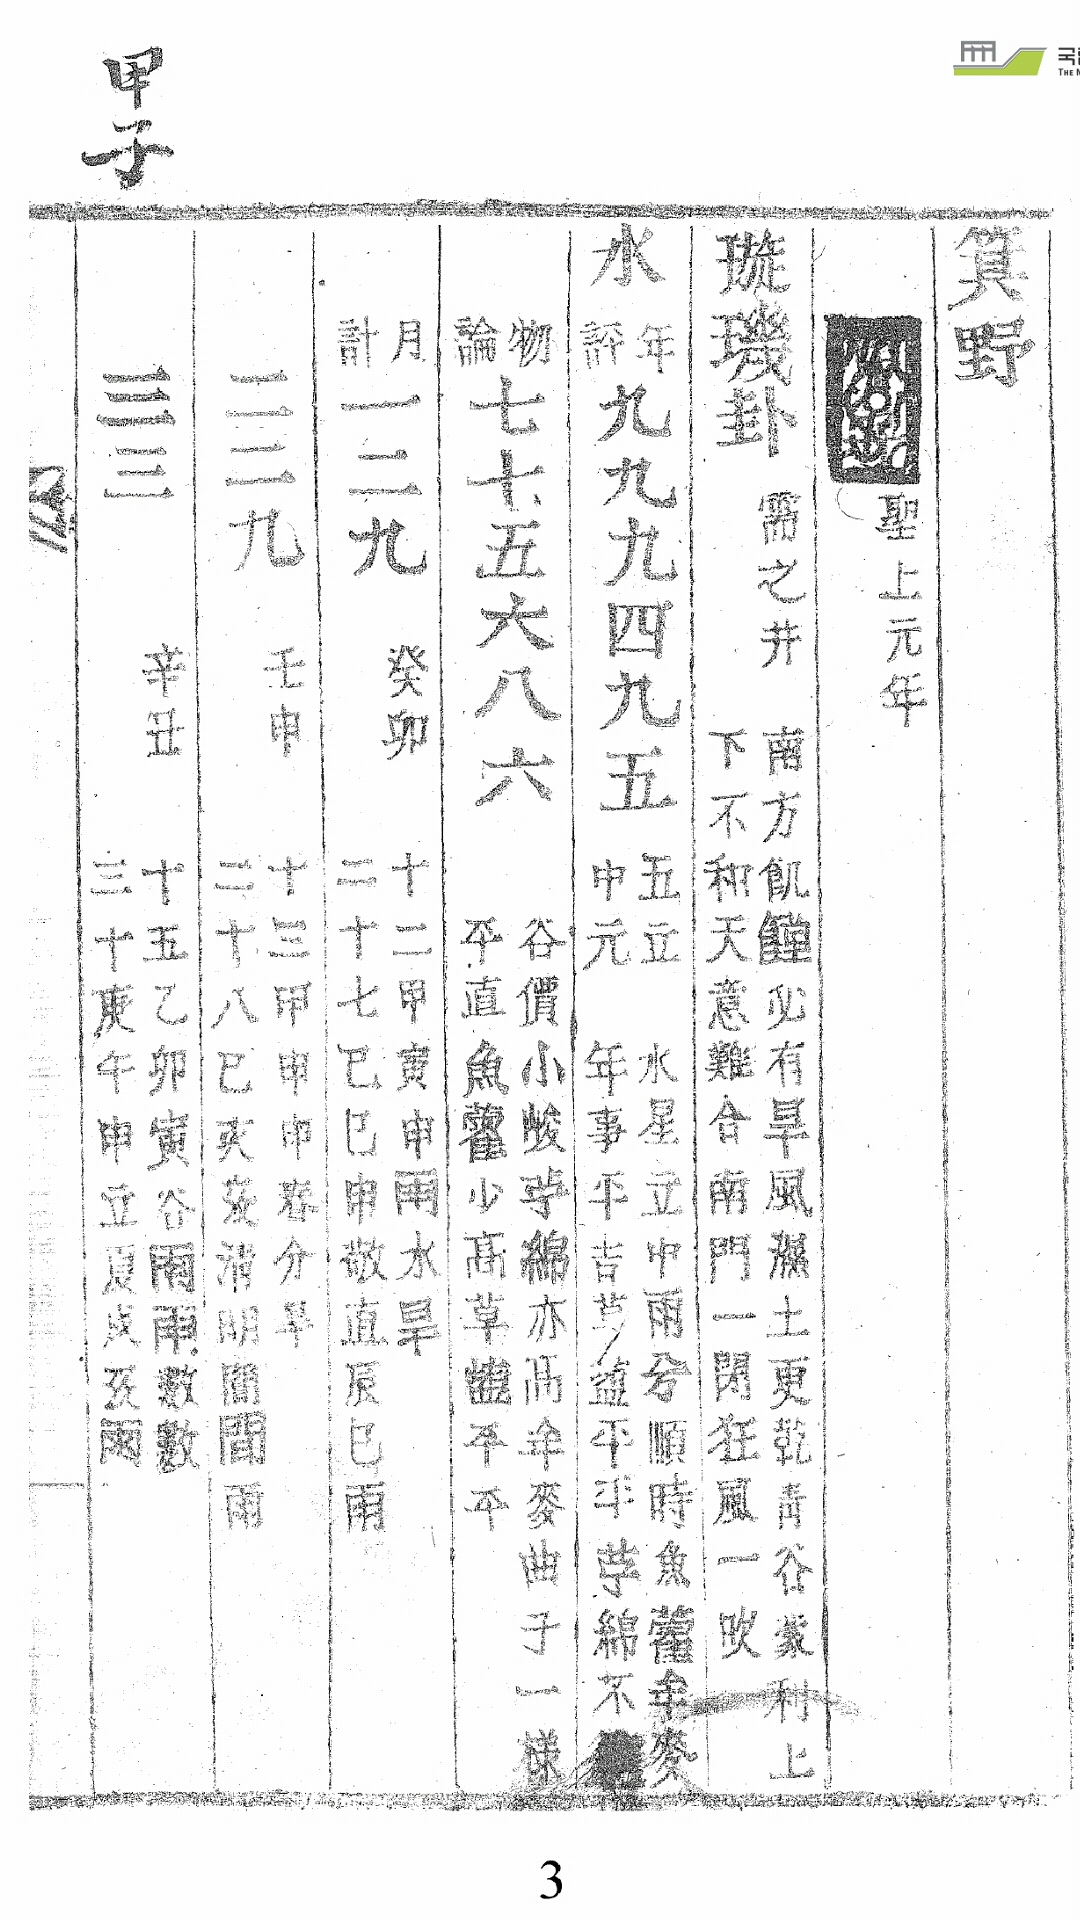 甲子
箕野
聖上元年
璇璣卦 需之井
南方飢饉必有旱風濕土更乾靑谷蒙利上
下不和天意難合南門一閉狂風一吹
水 年評 九九九四九五
五立
中元
水星立中雨兮順時魚藿牟麥
年事平吉 益平平 苧綿不
物論 七十五六八六
谷價小峻苧綿亦高牟麥曲子一樣
平直魚藿少高草 平平
月計 一二九 癸卯
十二甲寅申雨水旱
二十七巳巳申敬直辰巳雨
一三二九 壬申
十三甲申申春分旱
二十八巳亥 淸明 間雨
三三三 辛丑
十五乙卯寅谷雨雨數數
三十庚午申立夏戌亥雨
국립
THE N
3